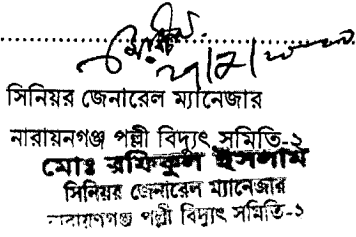 সিনিয়র জেনারেল ম্যানেজার
নারায়নগঞ্জ পল্লী বিদ্যুৎ সমিতি-২
মোঃ রফিকুল ইসলাম
সিনিয়র জেনারেল ম্যানেজার
নারায়ণগঞ্জ পল্লী বিদ্যুৎ সমিতি-২